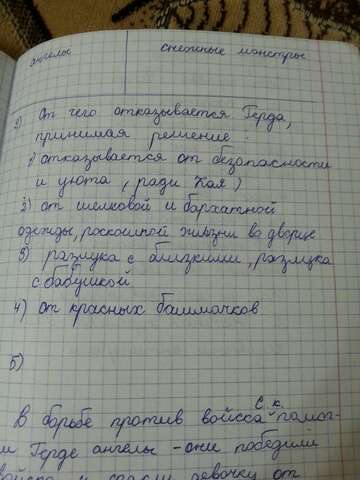 ангелы снежные монстры
3) От чего отказывается Герда,
принимая решение:
1) отказывается от безопасности
и уюта (ради Кая)
2) от шелковой и бархатной
одежды, роскошной жизни во дворце
3) разлука с близкими, разлука
с бабушкой
4) от красных башмачков
5)
С. К.
В борьбе против войска помог-
ли Герде ангелы - они победили
войско и спасли девочку от